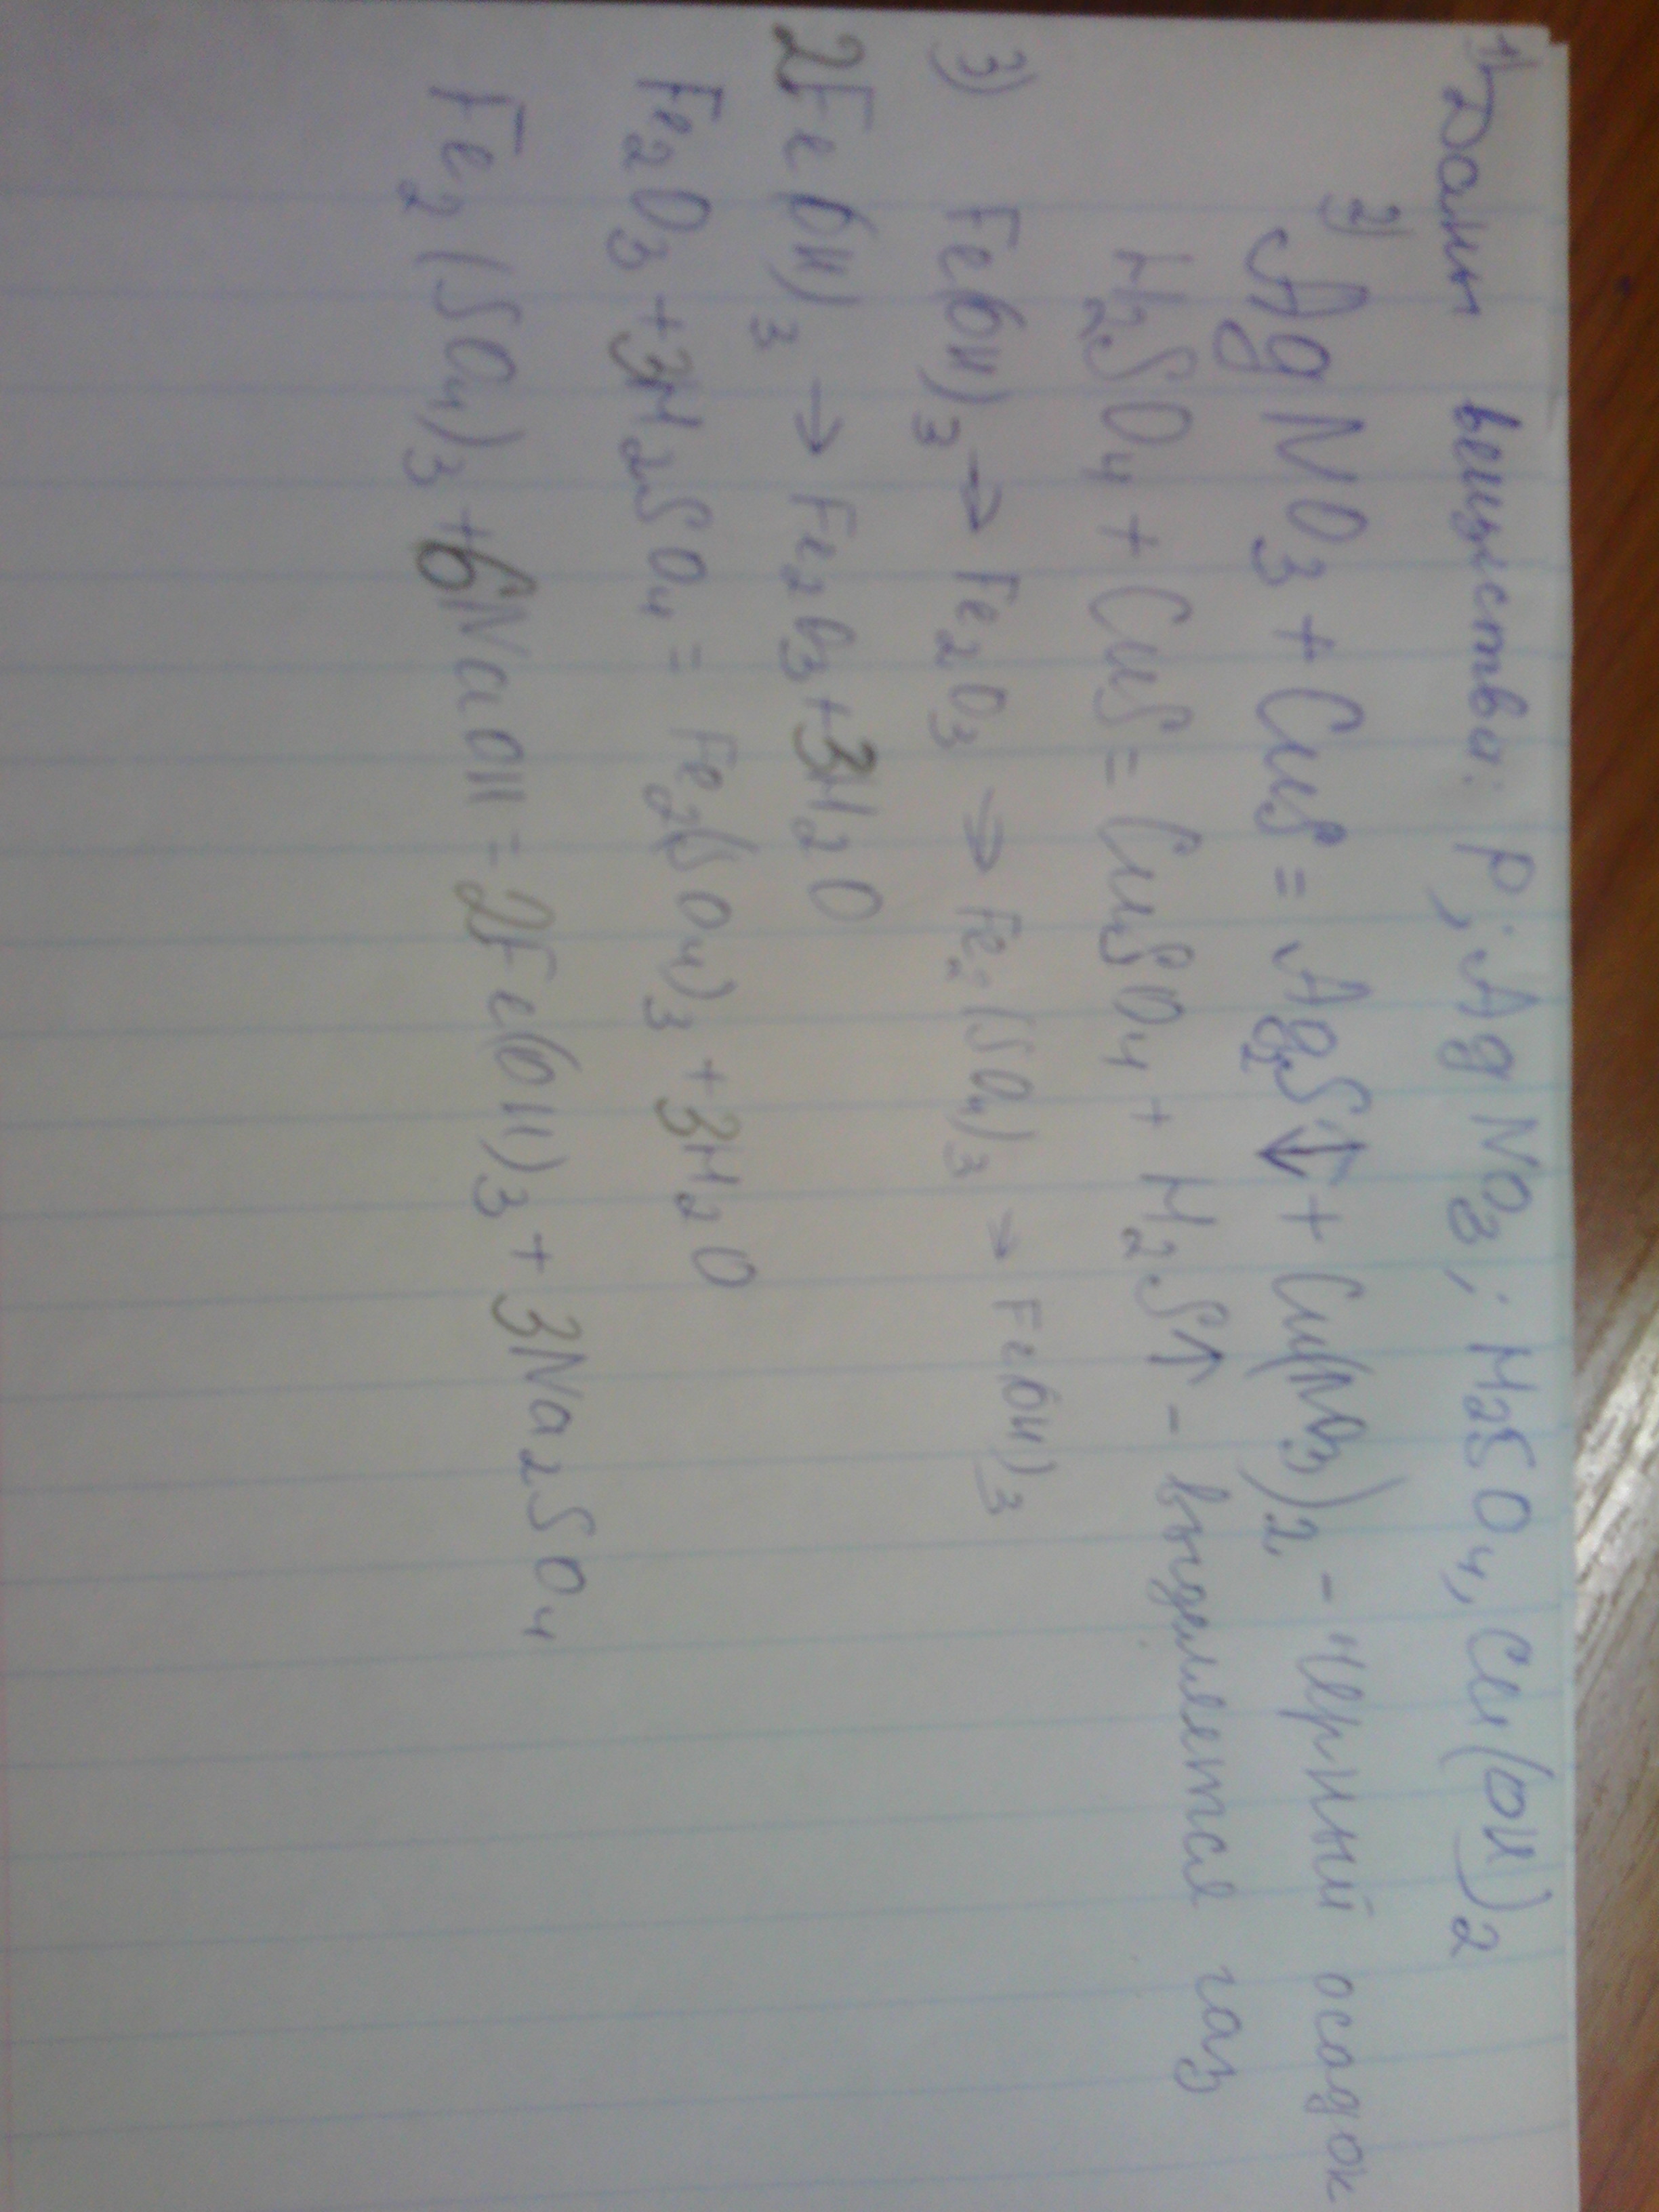 1) Даны вещества: P; AgNO3; H2SO4, Cu(OH)2
2) AgNO3 + CuS = Ag2S↓ + Cu(NO3)2 - черный осадок
H2SO4 + CuS = CuSO4 + H2S↑ - выделяется газ
3) Fe(OH)3 → Fe2O3 → Fe2(SO4)3 → Fe(OH)3
2Fe(OH)3 → Fe2O3 + 3H2O
Fe2O3 + 3H2SO4 = Fe2(SO4)3 + 3H2O
Fe2(SO4)3 + 6NaOH = 2Fe(OH)3 + 3Na2SO4